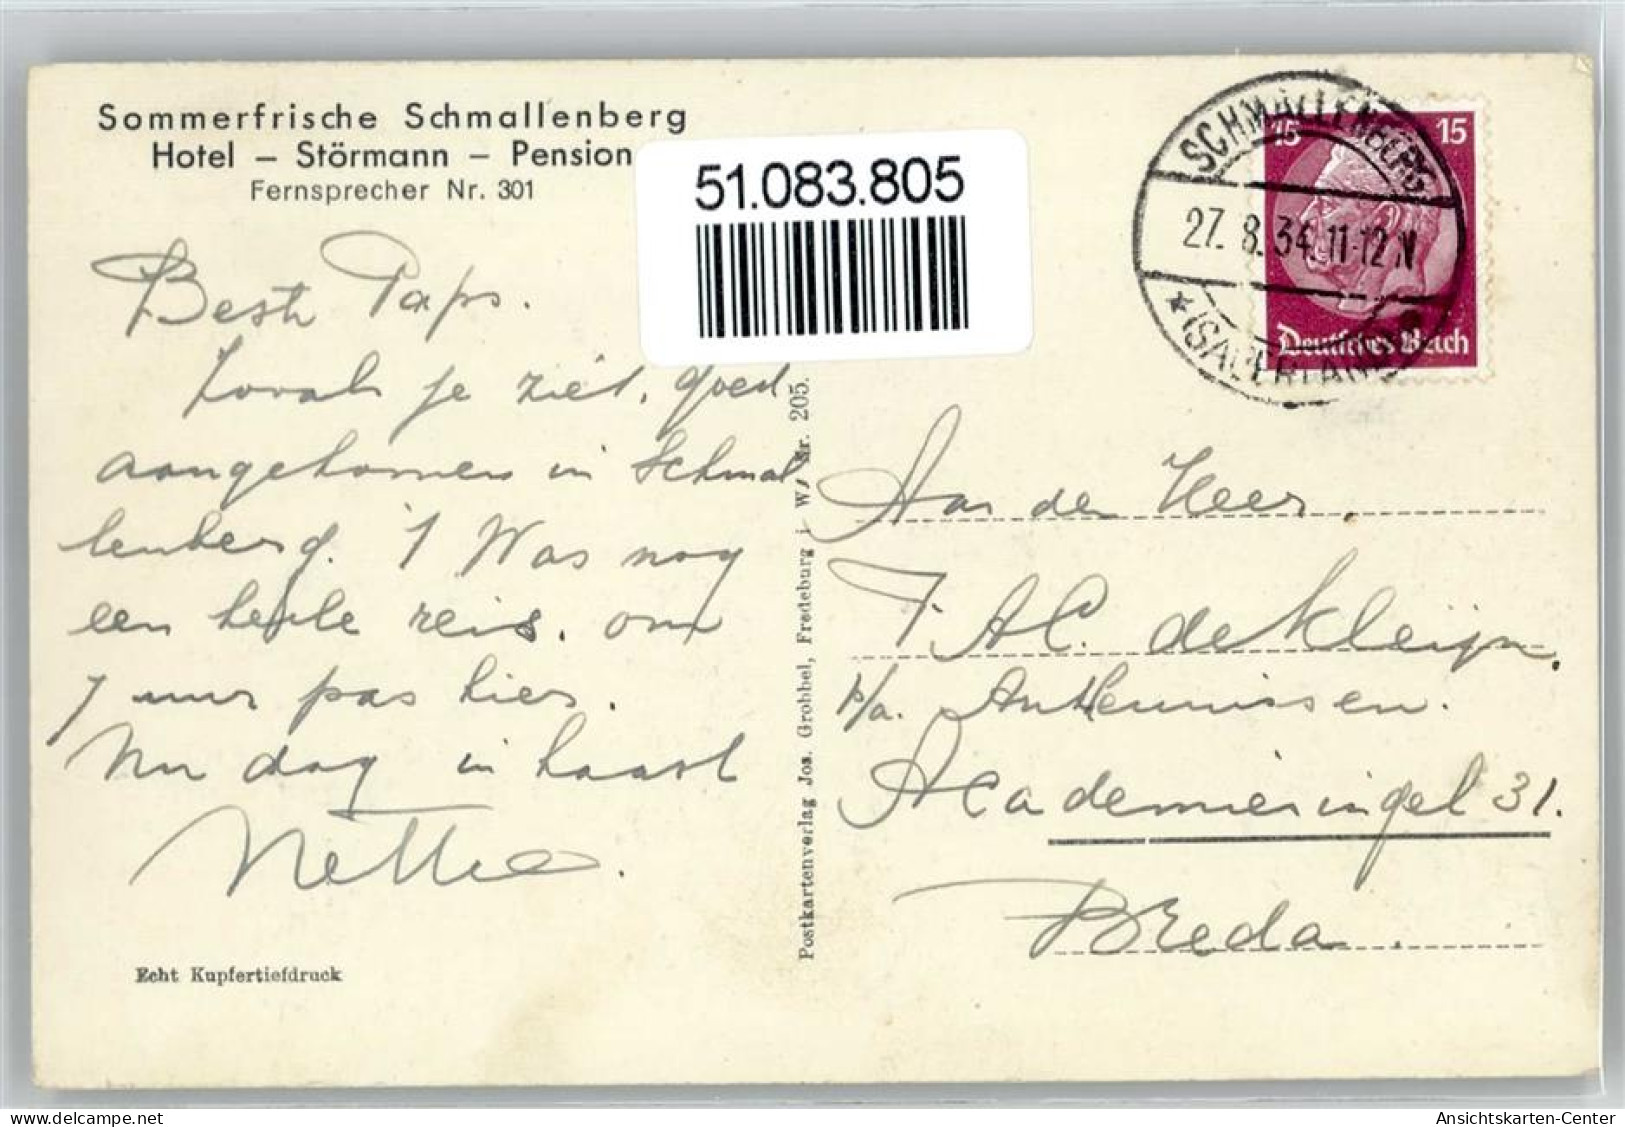 Sommerfrische Schmallenberg
Hotel – Störmann – Pension
Fernsprecher Nr. 301
51.083.805
SCHMALLENBERG
27. 8. 34. 11-12 N
★ (SAUERLAND)
15 15
Deutsches Reich
Beste Paps.
Zooals je ziet, goed
aangekomen in Schmal
lenberg. 't Was nog
een heele reis. om
7 uur pas hier.
Nu dag in haast
Nettie.
Echt Kupfertiefdruck
Postkartenverlag Jos. Grobbel, Fredeburg i. W. Nr. 205.
Aan den Heer.
A.C. de Kleijn.
p/a. Antheunissen.
Academiesingel 31.
Breda.
Ansichtskarten-Center